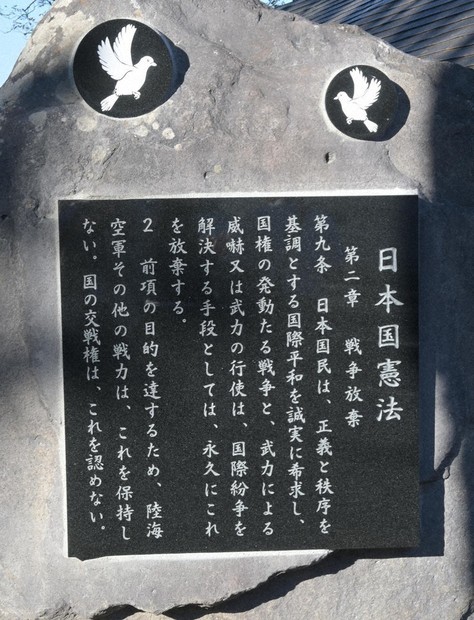 日本国憲法
第二章　戦争放棄
第九条　日本国民は、正義と秩序を
基調とする国際平和を誠実に希求し、
国権の発動たる戦争と、武力による
威嚇又は武力の行使は、国際紛争を
解決する手段としては、永久にこれ
を放棄する。
2　前項の目的を達するため、陸海
空軍その他の戦力は、これを保持し
ない。国の交戦権は、これを認めない。